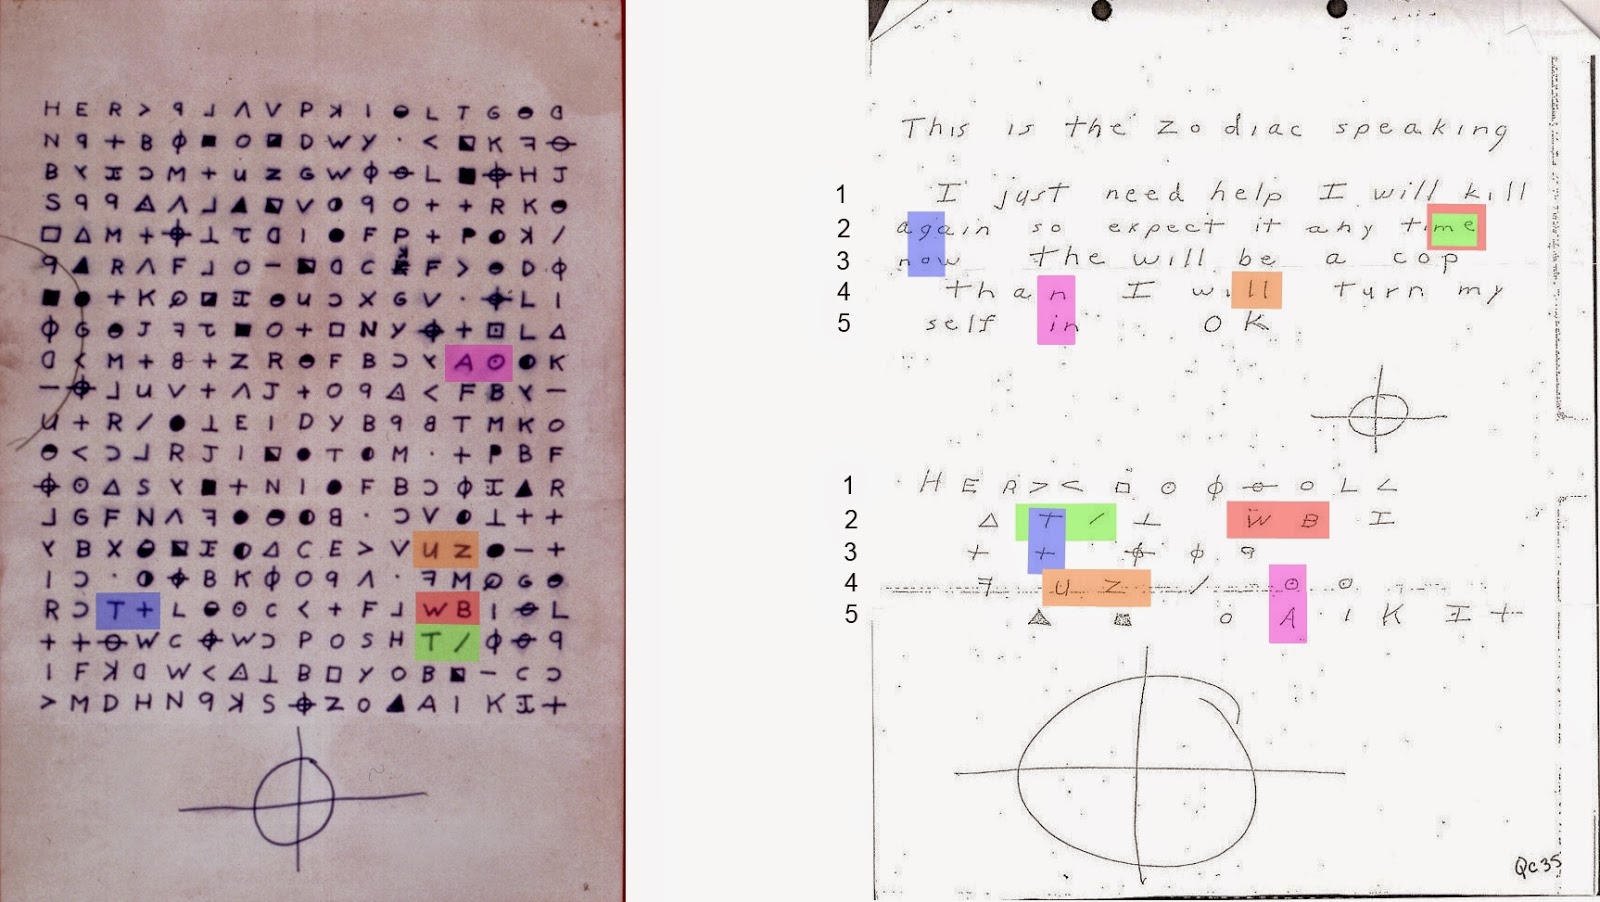 H E R > ꟼ ⅃ Λ V P ꓘ I ⊖ L T G ◓ ᗡ
N ꟼ + B ϕ ■ O ◪ D W Y · < ◣ K ꟻ ⊖
B Y Ɪ Ɔ M + u z G W ϕ ⊖ L ■ ⌖ H J
S ꟼ ꟼ △ Λ ⅃ ▲ ◪ V ◑ ꟼ O + + R K ◓
□ △ M + ⌖ ⊥ τ ᗡ I ● F P + P ◐ ꓘ /
ꟼ ▲ R Λ F ⅃ O − ◪ ᗡ C F > ◓ D ϕ
■ ● + K ◪ Ɪ ◓ u Ɔ X G V · ⌖ L I
ϕ G ◓ J ꟻ τ ■ O + □ N Y ⌖ + ⊡ L △
ᗡ < M + 8 + Z R ◓ F B Ɔ Y A ⊙ ◐ K
− ⌖ ⅃ u V + Λ J + O ꟼ △ < F B Y −
u + R / ● ⊥ E I D Y B 9 8 T M K O
◓ < Ɔ ⅃ R J I ◪ ● T ◐ M · + P B F
⌖ ⊙ △ S Y ■ + N I ● F B Ɔ ϕ Ɪ ▲ R
⅃ G F N Λ ꟻ ● ◓ ◐ 8 · Ɔ V ◐ ⊥ + +
Y B X ◓ ◪ Ɪ ◐ △ C E > V u Z ● − +
I Ɔ · ◐ ⌖ B K ϕ O ꟼ Λ · ꟻ M G ◓
R Ɔ T + L ◓ ⊙ C < + F ⅃ W B I ⊖ L
+ + ⊖ W C ⌖ W Ɔ P O S H T / ϕ ⊖ ꟼ
I F ꓘ ᗡ W < △ ⊥ B □ Y O B ◪ − C Ɔ
> M D H N 9 ꓘ S ⌖ Z O ▲ A I K Ɪ +
This is the Zodiac speaking
1 I just need help I will kill
2 again so expect it any time
3 now the will be a cop
4 than I will turn my
5 self in OK
1 H E R > < □ ⊙ ϕ ⊖ O L <
2 △ T / ⊥ W B Ɪ
3 + + ⌖ ϕ ꟼ
4 ꟻ u Z / ⊙ ⊙
5 ▲ ■ O A I K Ɪ +
Qc35